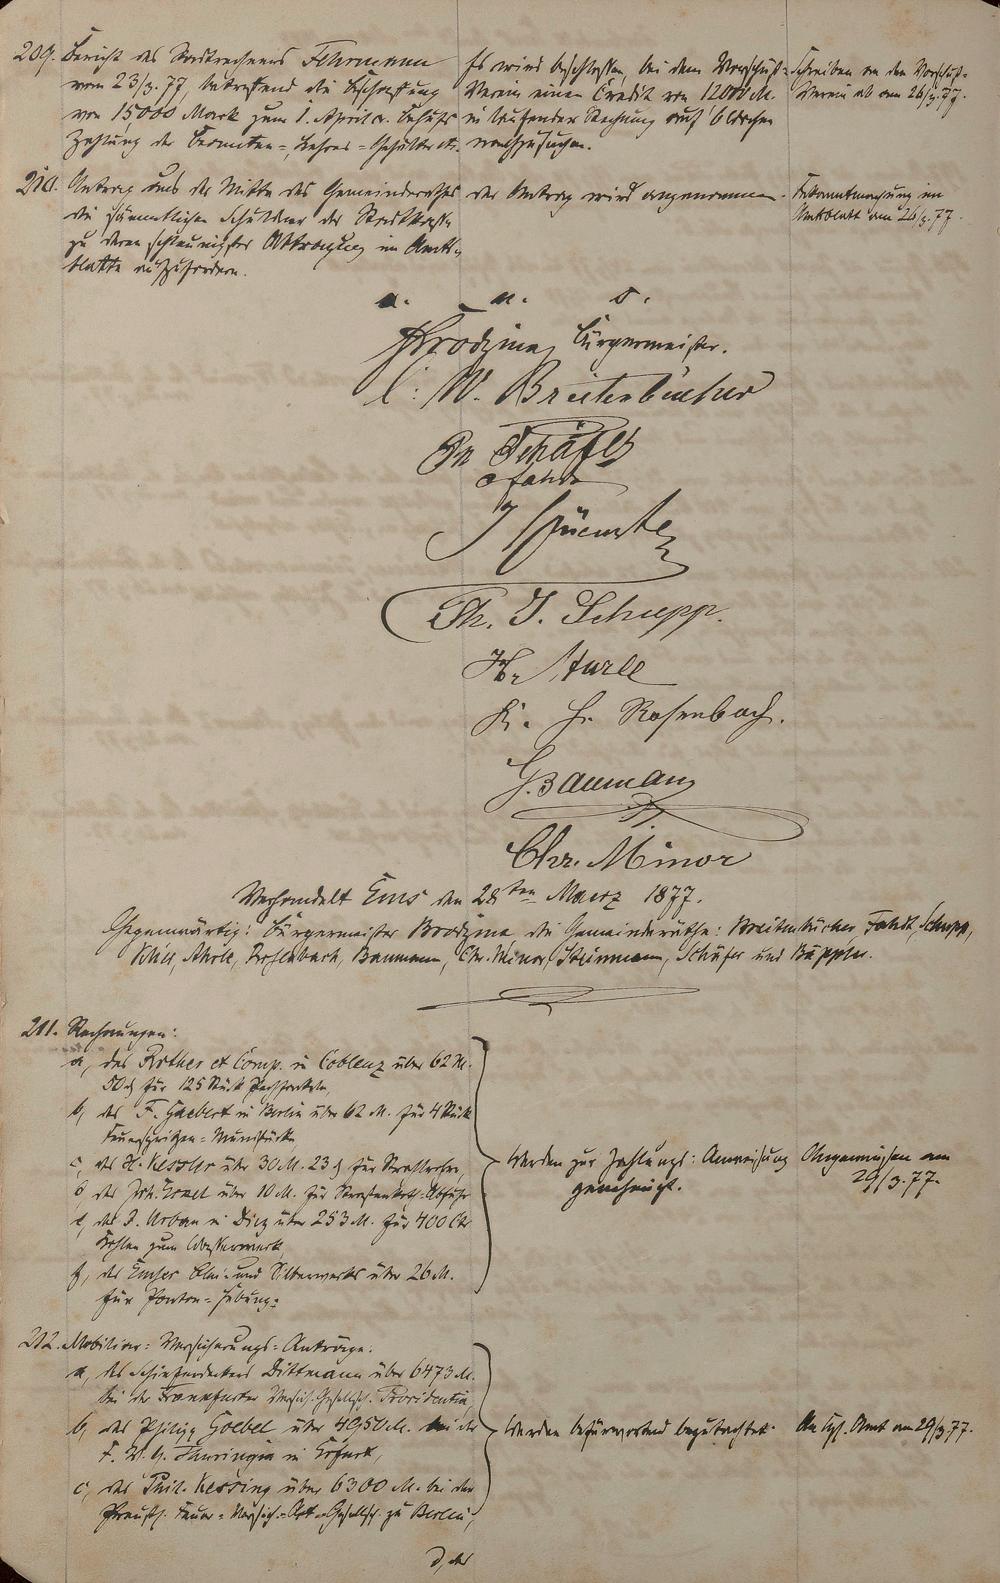 209. Bericht des Stadtrechners Fehrmann
vom 23/3. 77, betreffend die Beschaffung
von 15000 Mark zum 1. April c. behufs
Zahlung der Beamten=, Lehrer=Gehälter etc.
Es wird beschlossen, bei dem Vorschuß=
Verein einen Credit von 12000 M.
in laufender Rechnung auf 6 Wochen
nachzusuchen.
Schreiben an den Vorschuß=
Verein ab am 26/3. 77.
210. Antrag aus der Mitte des Gemeinderathes
die sämmtlichen Schuldner der Stadtkasse
zu deren schleunigster Abtragung im Amts=
blatte aufzufordern.
der Antrag wird angenommen.
Bekanntmachung im
Amtsblatt am 26/3. 77.
a. u. s.
Brodzina, Bürgermeister.
C. W. Breitenbücher
Ph Schäfer
Fahdt
Th. J. Schupp.
H. Ahrle
K. H. Rosenbach.
G. Baumann
Chr. Minor
Verhandelt Ems den 28ten Maerz 1877.
Gegenwärtig: Bürgermeister Brodzina die Gemeinderäthe: Breitenbücher Fahdt, Schupp,
Ahrle, Rosenbach, Baumann, Chr. Minor, Steinmann, Schäfer und Bäppler.
211. Rechnungen:
a, des Rother et Comp. in Coblenz über 62 M.
50 ₰ für 125 Stück Pechfackeln,
b, des F. Gaebert in Berlin über 62 M. für 4 Stück
Feuerspritzen=Mundstücke
c, des H. Kessler über 30 M. 23 ₰ für
d, des Joh. über 10 M. für Straßenkoth-Abfuhr
e, des J. Urban in Diez über 253 M. für 400 Ctr
Kohlen zum Wasserwerk,
f, des Emser Blei- und Silberwerks über 26 M.
für
Werden zur Zahlungs=Anweisung
genehmigt.
Angewiesen am
29/3. 77.
212. Mobiliar=Versicherungs=Anträge:
a, des Schieferdeckers Dittmann über 6473 M.
bei der Frankfurter Versich. Gesellsch. Providentia,
b, des Philipp Goebel über 4950 M. bei der
F. V. G. Thuringia in Erfurt,
c, des Phil. Kessing über 6300 M. bei der
Preuß. Feuer=Versich.=Act.=Gesellsch. zu Berlin,
Werden befürwortend begutachtet.
An Kgl. Amt am 29/3. 77.
d, des